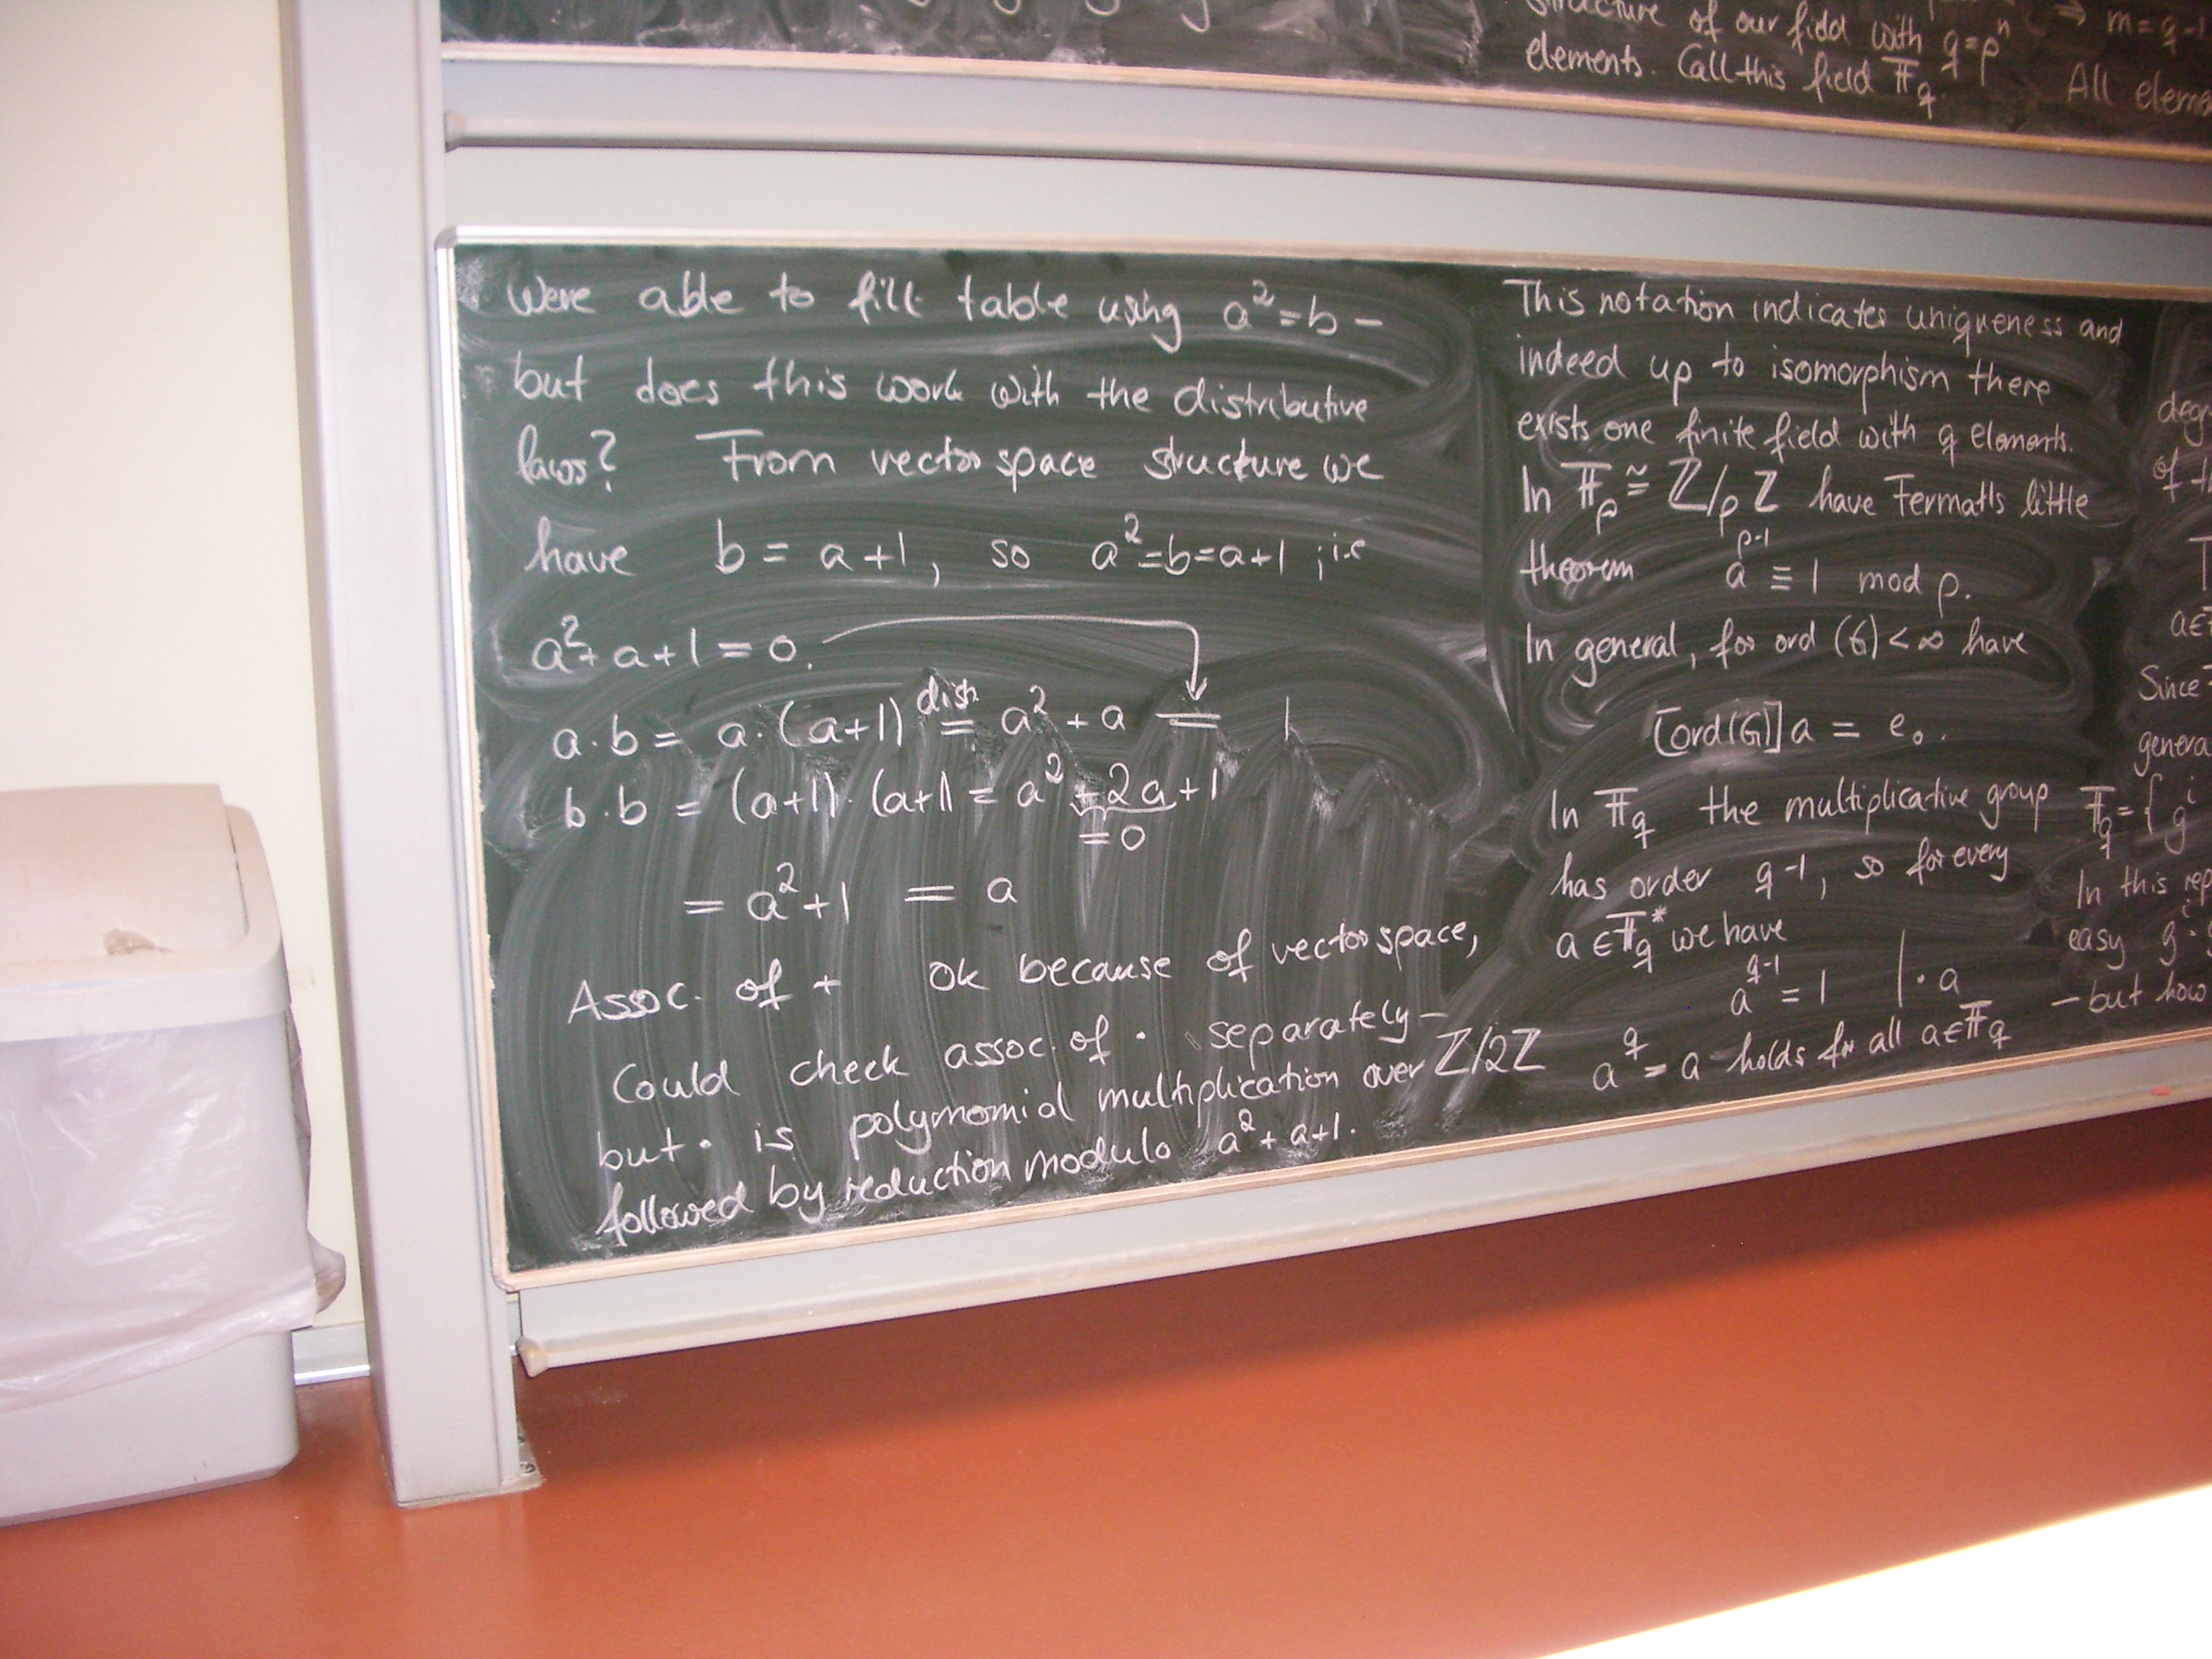 structure of our field with q=pⁿ
elements. Call this field 𝔽_q.
⇒ m=q-1
All
Were able to fill table using a²=b –
but does this work with the distributive
laws? From vector space structure we
have b = a+1, so a²=b=a+1, i.e
a²+a+1=0.
a·b = a·(a+1) dist. = a²+a = 1
b·b = (a+1)·(a+1) = a²+2a+1
=0
= a²+1 = a
Assoc. of + ok because of vector space,
Could check assoc. of · separately –
but · is polymomial multiplication over ℤ/2ℤ
followed by reduction modulo a²+a+1.
This notation indicates uniqueness and
indeed up to isomorphism there
exists one finite field with q elements.
In 𝔽_p ≅ ℤ/pℤ have Fermat's little
theorem a^{p-1} ≡ 1 mod p.
In general, for ord (G)<∞ have
[ord(G)]a = e₀.
In 𝔽_q the multiplicative group
has order q-1, so for every
a∈𝔽_q* we have
a^{q-1} = 1 |·a
a^q = a holds for all a∈𝔽_q
of
Since
𝔽_q={g^i
In this
easy g^i·
– but how